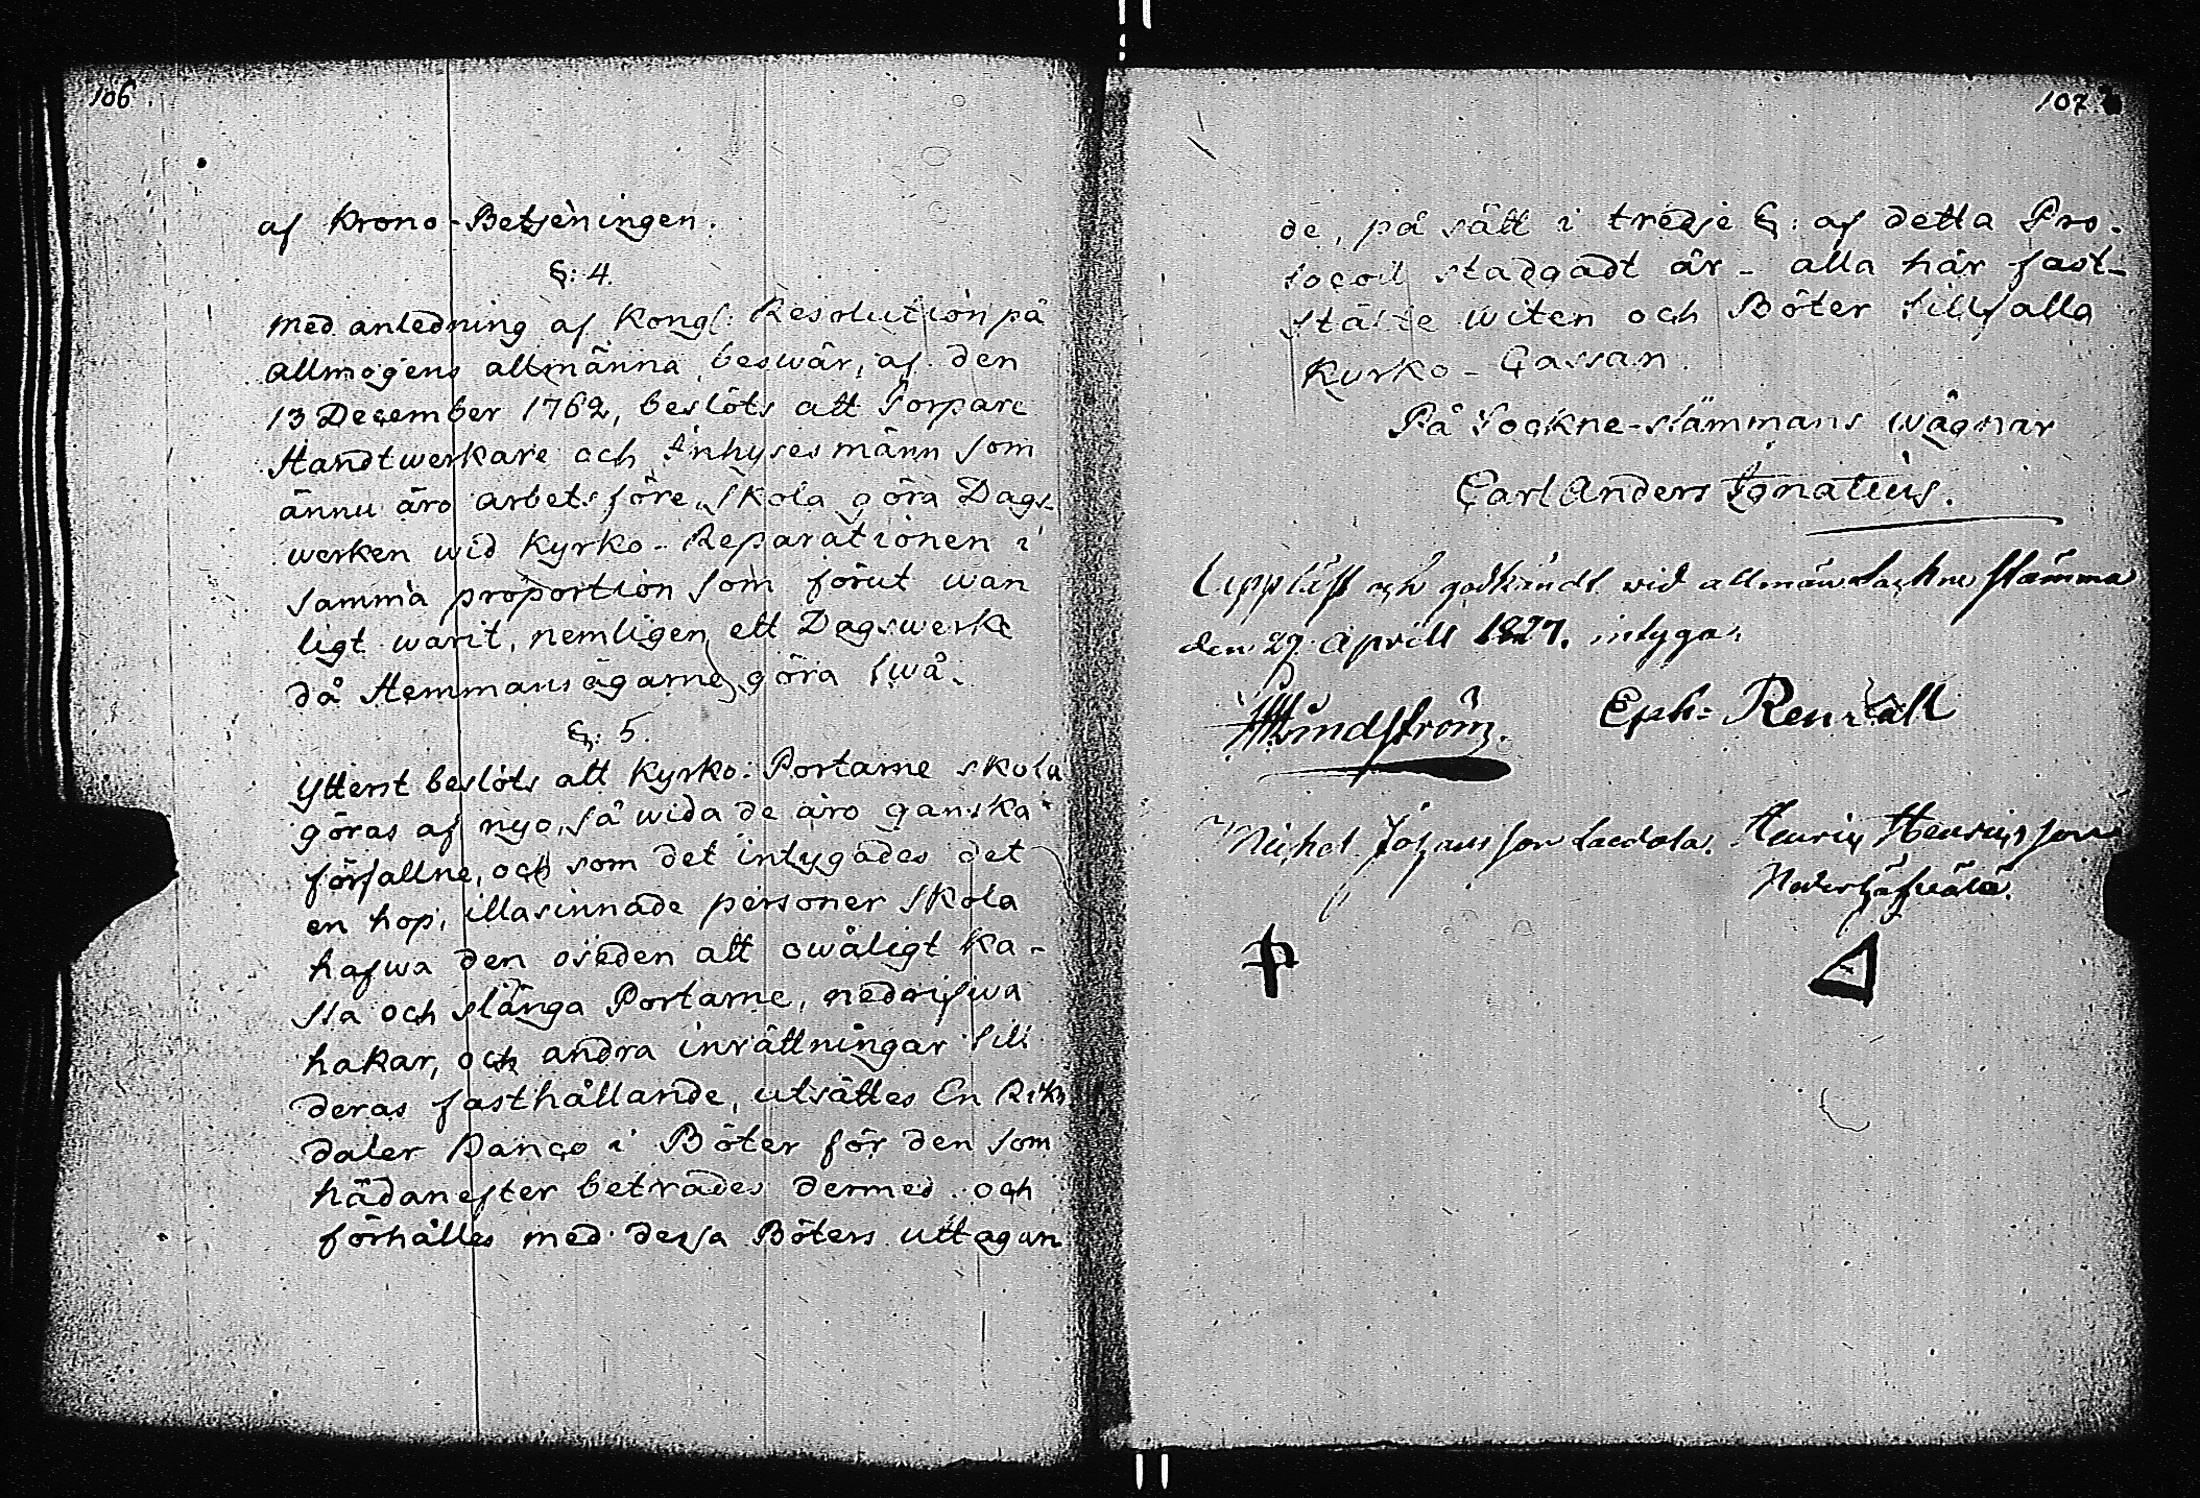 106.
af Krono-Betjeningen.
§: 4.
Med anledning af Kongl: Resolution på
allmogens allmänna beswär, af den
13 December 1762, beslöts att Torpare
Handtwerkare och Inhyses männ som
ännu äro arbets före, skola göra Dags-
werken wid Kyrko-Reparationen i
samma proportion som förut wan
ligt warit, nemligen ett Dagswerke
då Hemmansägarne göra twå.
§: 5.
Ytterst beslöts att Kyrko-Portarne skola
göras af nyo, så wida de äro ganska
förfallne, och som det intygades det
en hop illasinnade personer skola
hafwa den oseden att owåligt ka-
sta och slänga Portarne, nedrifwa
hakar, och andra inrättningar till
deras fasthållande, utsättes En Riks
daler Banco i Böter för den som
hädanefter beträdes dermed och
förhålles med dessa Böters uttagan
107
de, på sätt i tredje §: af detta Pro-
tocoll stadgadt är - alla här fast-
stälte witen och Böter tillfalla
Kyrko-Cassan.
På Sockne-stämmans wägnar
Carl Anders Ignatius.
Uppläst och godkändt wid allmän Sockne stämma
den 29 Aprill 1827. intyga,
Lindström. Eph: Renvall
Michel Johansson Henric Henricsson